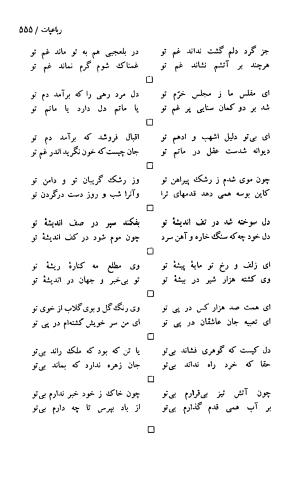 رباعیات / ۵۵۵
جز گرد دلم گشت نداند غم تو    در بلعجبی هم به تو ماند غم تو
هرچند بر آتشم نشاند غم تو    غمناک شوم گرم نماند غم تو
ای مفلس ما ز مجلس خرّم تو    دل مرد رهی را که برآمد دم تو
شد بر دو کمان سنایی پر غم تو    یا ماتم دل دارد یا ماتم تو
ای بی‌تو دلیل اشهب و ادهم تو    اقبال فروشد که برآمد دم تو
دیوانه شدست عقل در ماتم تو    جان چیست که خون نگرید اندر غم تو
چون موی شدم ز رشک پیراهن تو    وز رشک گریبان تو و دامن تو
کاین بوسه همی دهد قدمهای ترا    وآنرا شب و روز دست درگردن تو
دل سوخته شد در تف اندیشهٔ تو    بفکند سپر در صف اندیشهٔ تو
دل خود چه که سنگ خاره و آهن سرد    چون موم شود در کف اندیشهٔ تو
ای زلف و رخ تو مایهٔ پیشهٔ تو    وی مطلع مه کنارهٔ ریشهٔ تو
وی کشته هزار شیر در بیشهٔ تو    تو بی‌خبر و جهان در اندیشهٔ تو
ای همت صد هزار کس در پی تو    وی رنگ گل و بوی گلاب از خوی تو
ای تعبیه جان عاشقان در پی تو    ای من سر خویش کشته‌ام در پی تو
دل کیست که گوهری فشاند بی‌تو    یا تن که بود که ملک راند بی‌تو
حقا که خرد راه نداند بی‌تو    جان زهره ندارد که بماند بی‌تو
چون آتش تیز بی‌قرارم بی‌تو    چون خاک ز خود خبر ندارم بی‌تو
بر آب همی قدم گذارم بی‌تو    از باد بپرس تا چه دارم بی‌تو